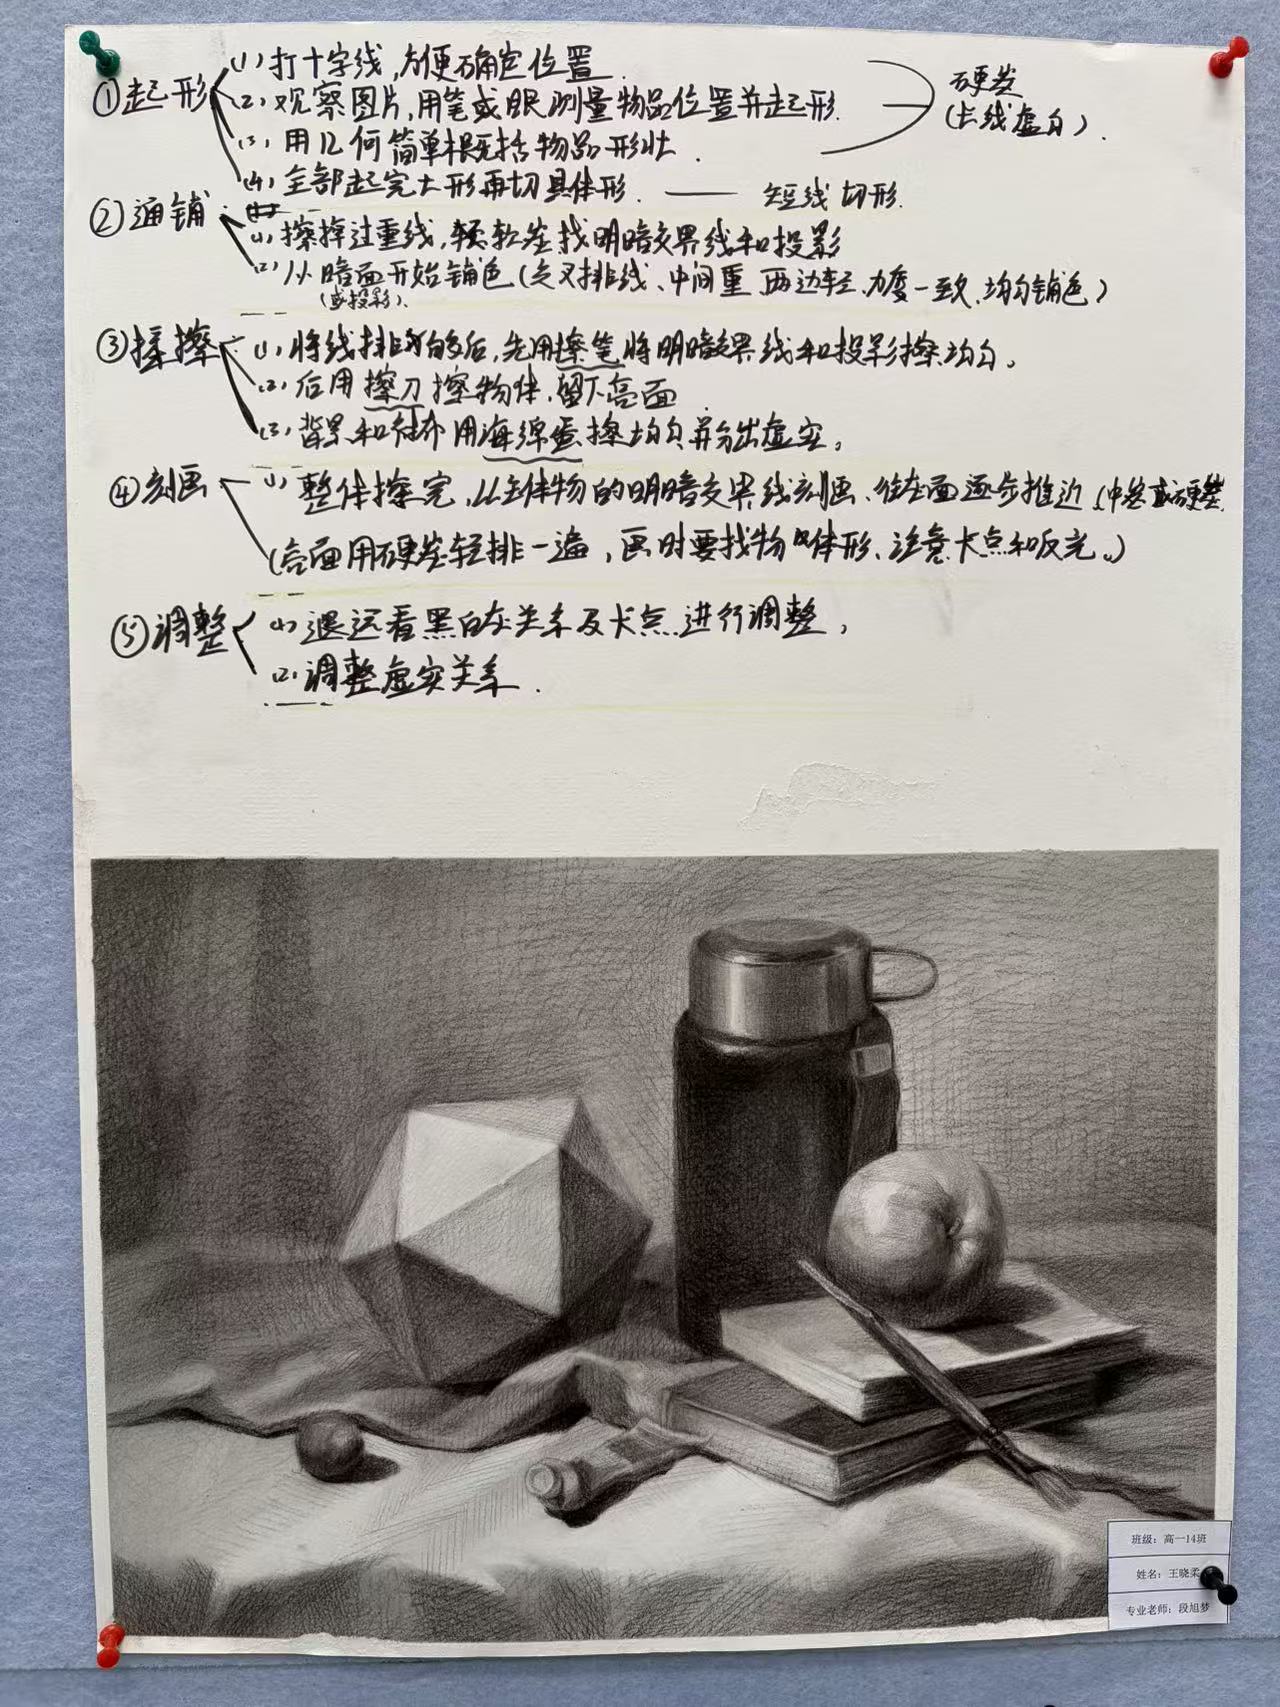 ①起形 (1)打十字线,方便确定位置.
(2)观察图片,用笔或眼测量物品位置并起形.
(3)用几何简单概括物品形状.
(4)全部起完大形再切具体形. —— 短线切形.
硬炭
(长线虚勾).
②通铺:
(1)擦掉过重线,软炭找明暗交界线和投影
(2)从暗面开始铺色(交叉排线、中间重两边轻、力度一致、均匀铺色)
(或投影)、
③揉擦 (1)将线排好的后,先用擦笔将明暗交界线和投影擦均匀。
(2)后用擦刀擦物体,留下亮面
(3)背景和衬布用海绵蛋擦均匀并分出虚实。
④刻画 (1)整体擦完,从主体物的明暗交界线刻画、往灰面逐步推近(中炭或硬炭
(亮面用硬炭轻排一遍,画时要找物体形、注意卡点和反光。)
⑤调整 (1)退远看黑白灰关系及卡点进行调整,
(2)调整虚实关系.
班级:高一14班
姓名:王晓柔
专业老师:段旭梦